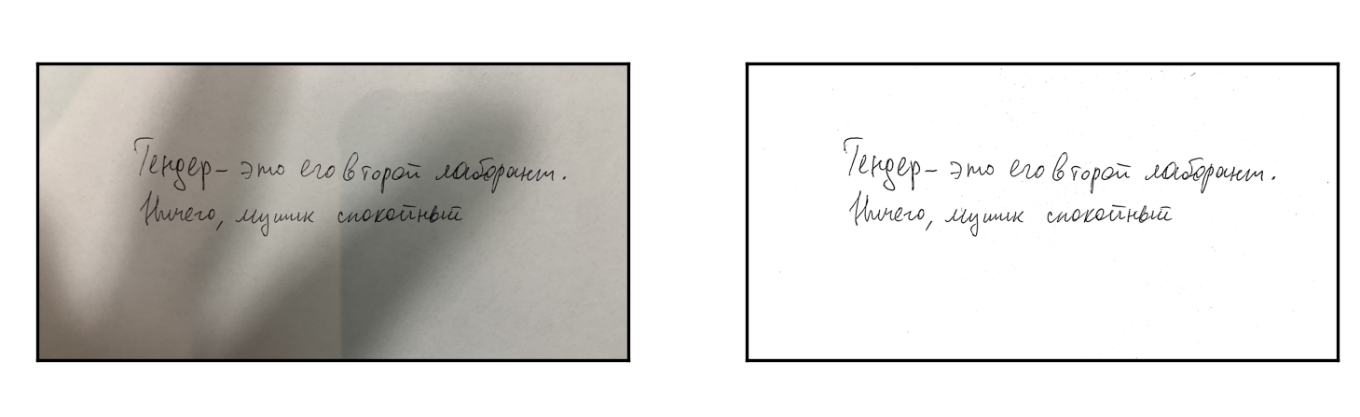 Тендер – это его второй лаборант.
Ничего, мушик спокойный
Тендер – это его второй лаборант.
Ничего, мушик спокойный